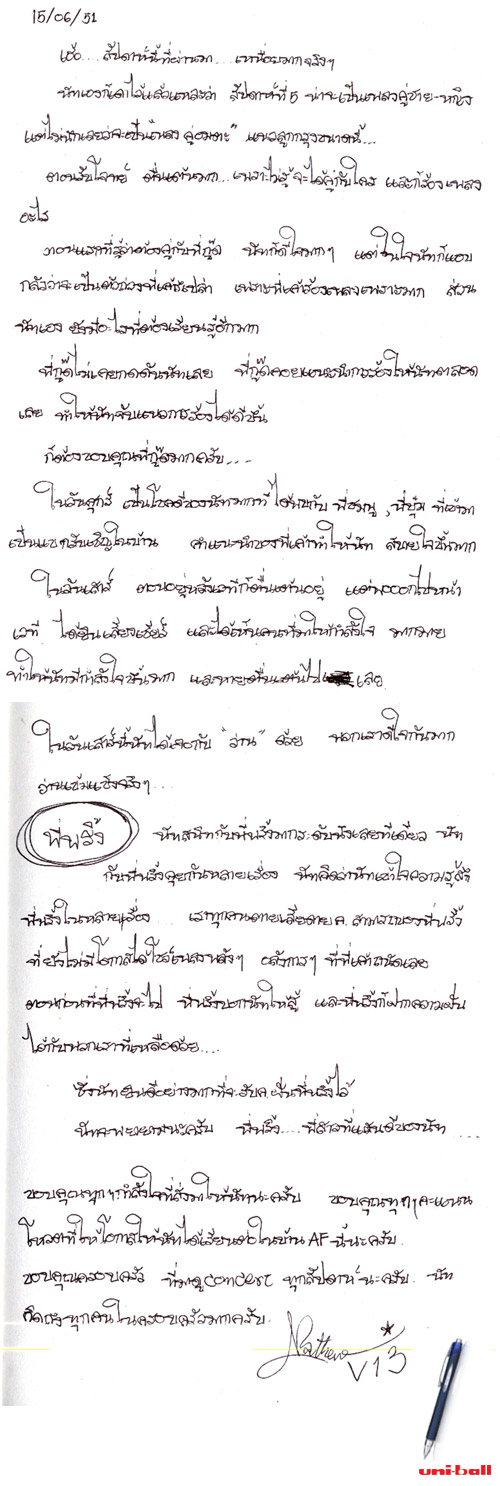 15/06/51
เฮ้อ.... สัปดาห์นี้ที่ผ่านมา.... เหนื่อยมากจริงๆ
นัทเองก็เดาไว้แล้วแหละว่า สัปดาห์ที่ 5 น่าจะเป็นเพลงคู่ชาย-หญิง
แต่ไม่นึกเลยว่าจะเป็น"เพลง คู่อมตะ" แนวลูกกรุงขนาดนี้...
ตอนรับโจทย์ ตื่นเต้นมาก... เพราะไม่รู้จะได้คู่กับใคร และก็ร้องเพลง
อะไร
ตอนแรกที่รู้ว่าต้องคู่กับพี่กู๊ด นัทก็ดีใจมากๆ แต่ในใจนัทก็แอบ
กลัวว่าจะเป็นตัวถ่วงพี่เค้ารึเปล่า เพราะพี่เค้าร้องเพลงเพราะมาก ส่วน
นัทเอง ยังมีอะไรที่ต้องเรียนรู้อีกมาก
พี่กู๊ดไม่เคยกดดันนัทเลย พี่กู๊ดคอยแนะนำการร้องให้นัทตลอด
เลย ทำให้นัทจับแนวการร้องได้ดีขึ้น
ก็ต้องขอบคุณพี่กู๊ดมากครับ....
ในวันศุกร์ เป็นโชคดีของนัทมากที่ได้พบกับ พี่ชมพู , พี่ปุ้ม ที่เข้ามา
เป็นแขกรับเชิญในบ้าน คำแนะนำของพี่เค้าทำให้นัท สบายใจขึ้นมาก
ในวันเสาร์ ตอนอยู่หลังเวทีก็ตื่นเต้นอยู่ แต่พอออกไปหน้า
เวที ได้ยินเสียงเชียร์ และได้เห็นคนที่มาให้กำลังใจ มากมาย
ทำให้นัทมีกำลังใจขึ้นมาก และหายตื่นเต้นไป เลย
ในวันเสาร์นี้นัทได้เจอกับ "ว่าน" ด้วย พวกเราดีใจกันมาก
ว่านเข้มแข็งจริงๆ....
พี่พริ้ง นัทสนิทกับพี่พริ้งมากระดับนึงเลยทีเดียว นัท
กับพี่พริ้งคุยกันหลายเรื่อง นัทคิดว่านัทเข้าใจความรู้สึก
พี่พริ้งในหลายๆเรื่อง เราทุกคนเสียดาย ค.สามารถของพี่พริ้ง
ที่ยังไม่มีโอกาสได้โชว์เพลงพลังๆ อลังการๆ ที่พี่เค้าถนัดเลย
ตอนก่อนที่พี่พริ้งจะไป พี่พริ้งบอกนัทให้สู้ และพี่พริ้งก็ฝากความฝัน
ไว้กับพวกเราที่เหลือด้วย....
ซึ่งนัทยินดีอย่างมากที่จะรับ ค.ฝันพี่พริ้งไว้
นัทจะพยายามนะครับ พี่พริ้ง.... พี่สาวที่แสนดีของนัท ....
ขอบคุณทุกๆกำลังใจที่ส่งมาให้นัทนะครับ ขอบคุณทุกๆคะแนน
โหวตที่ให้โอกาสให้นัทได้เรียนต่อในบ้าน AF นี้นะครับ.
ขอบคุณครอบครัว ที่มาดูconcert ทุกสัปดาห์นะครับ. นัท
คิดถึงทุกคนในครอบครัวมากครับ.
V13
uni-ball